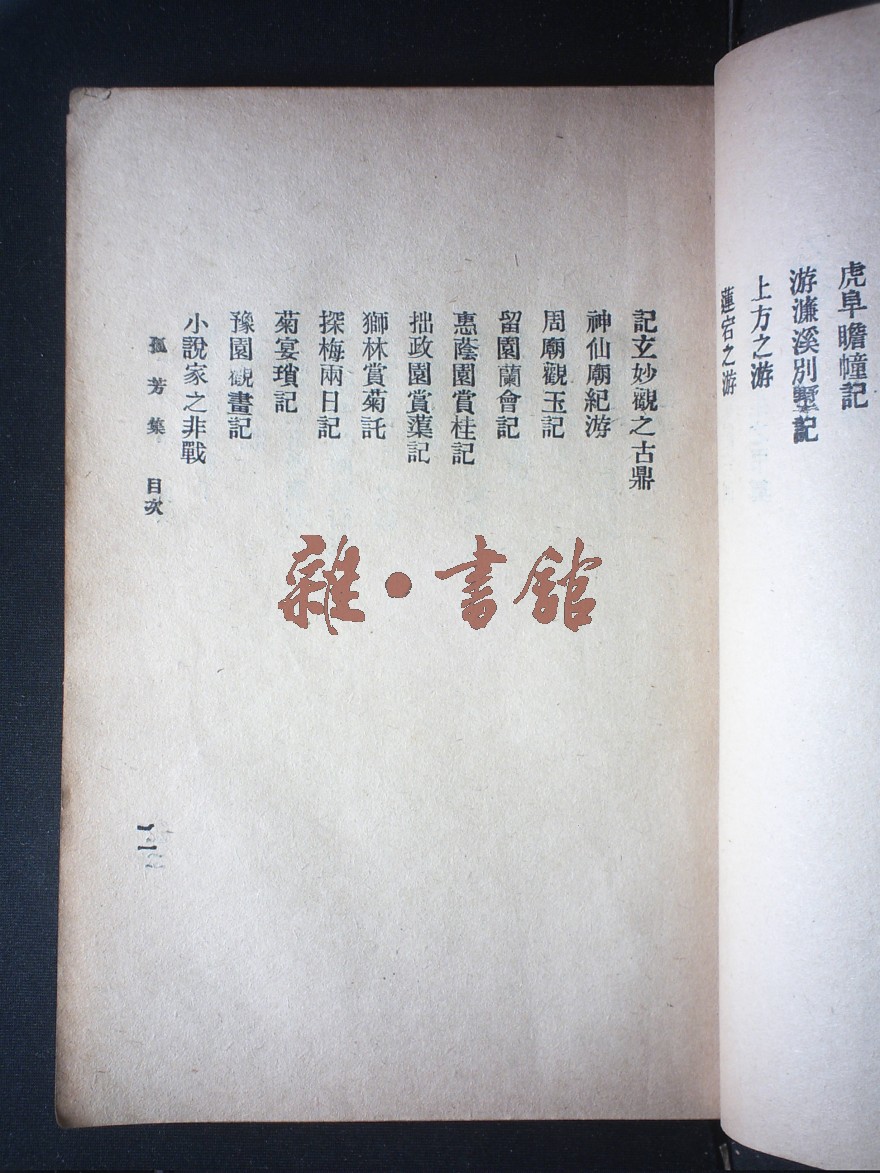 虎阜瞻幢記
游濂溪別墅記
上方之游
蓮宕之游
記玄妙觀之古鼎
神仙廟紀游
周廟觀玉記
留園蘭會記
惠蔭園賞桂記
拙政園賞蕖記
獅林賞菊託
探梅兩日記
菊宴瑣記
豫園觀畫記
小說家之非戰
孤芳集 目次
雜·書館